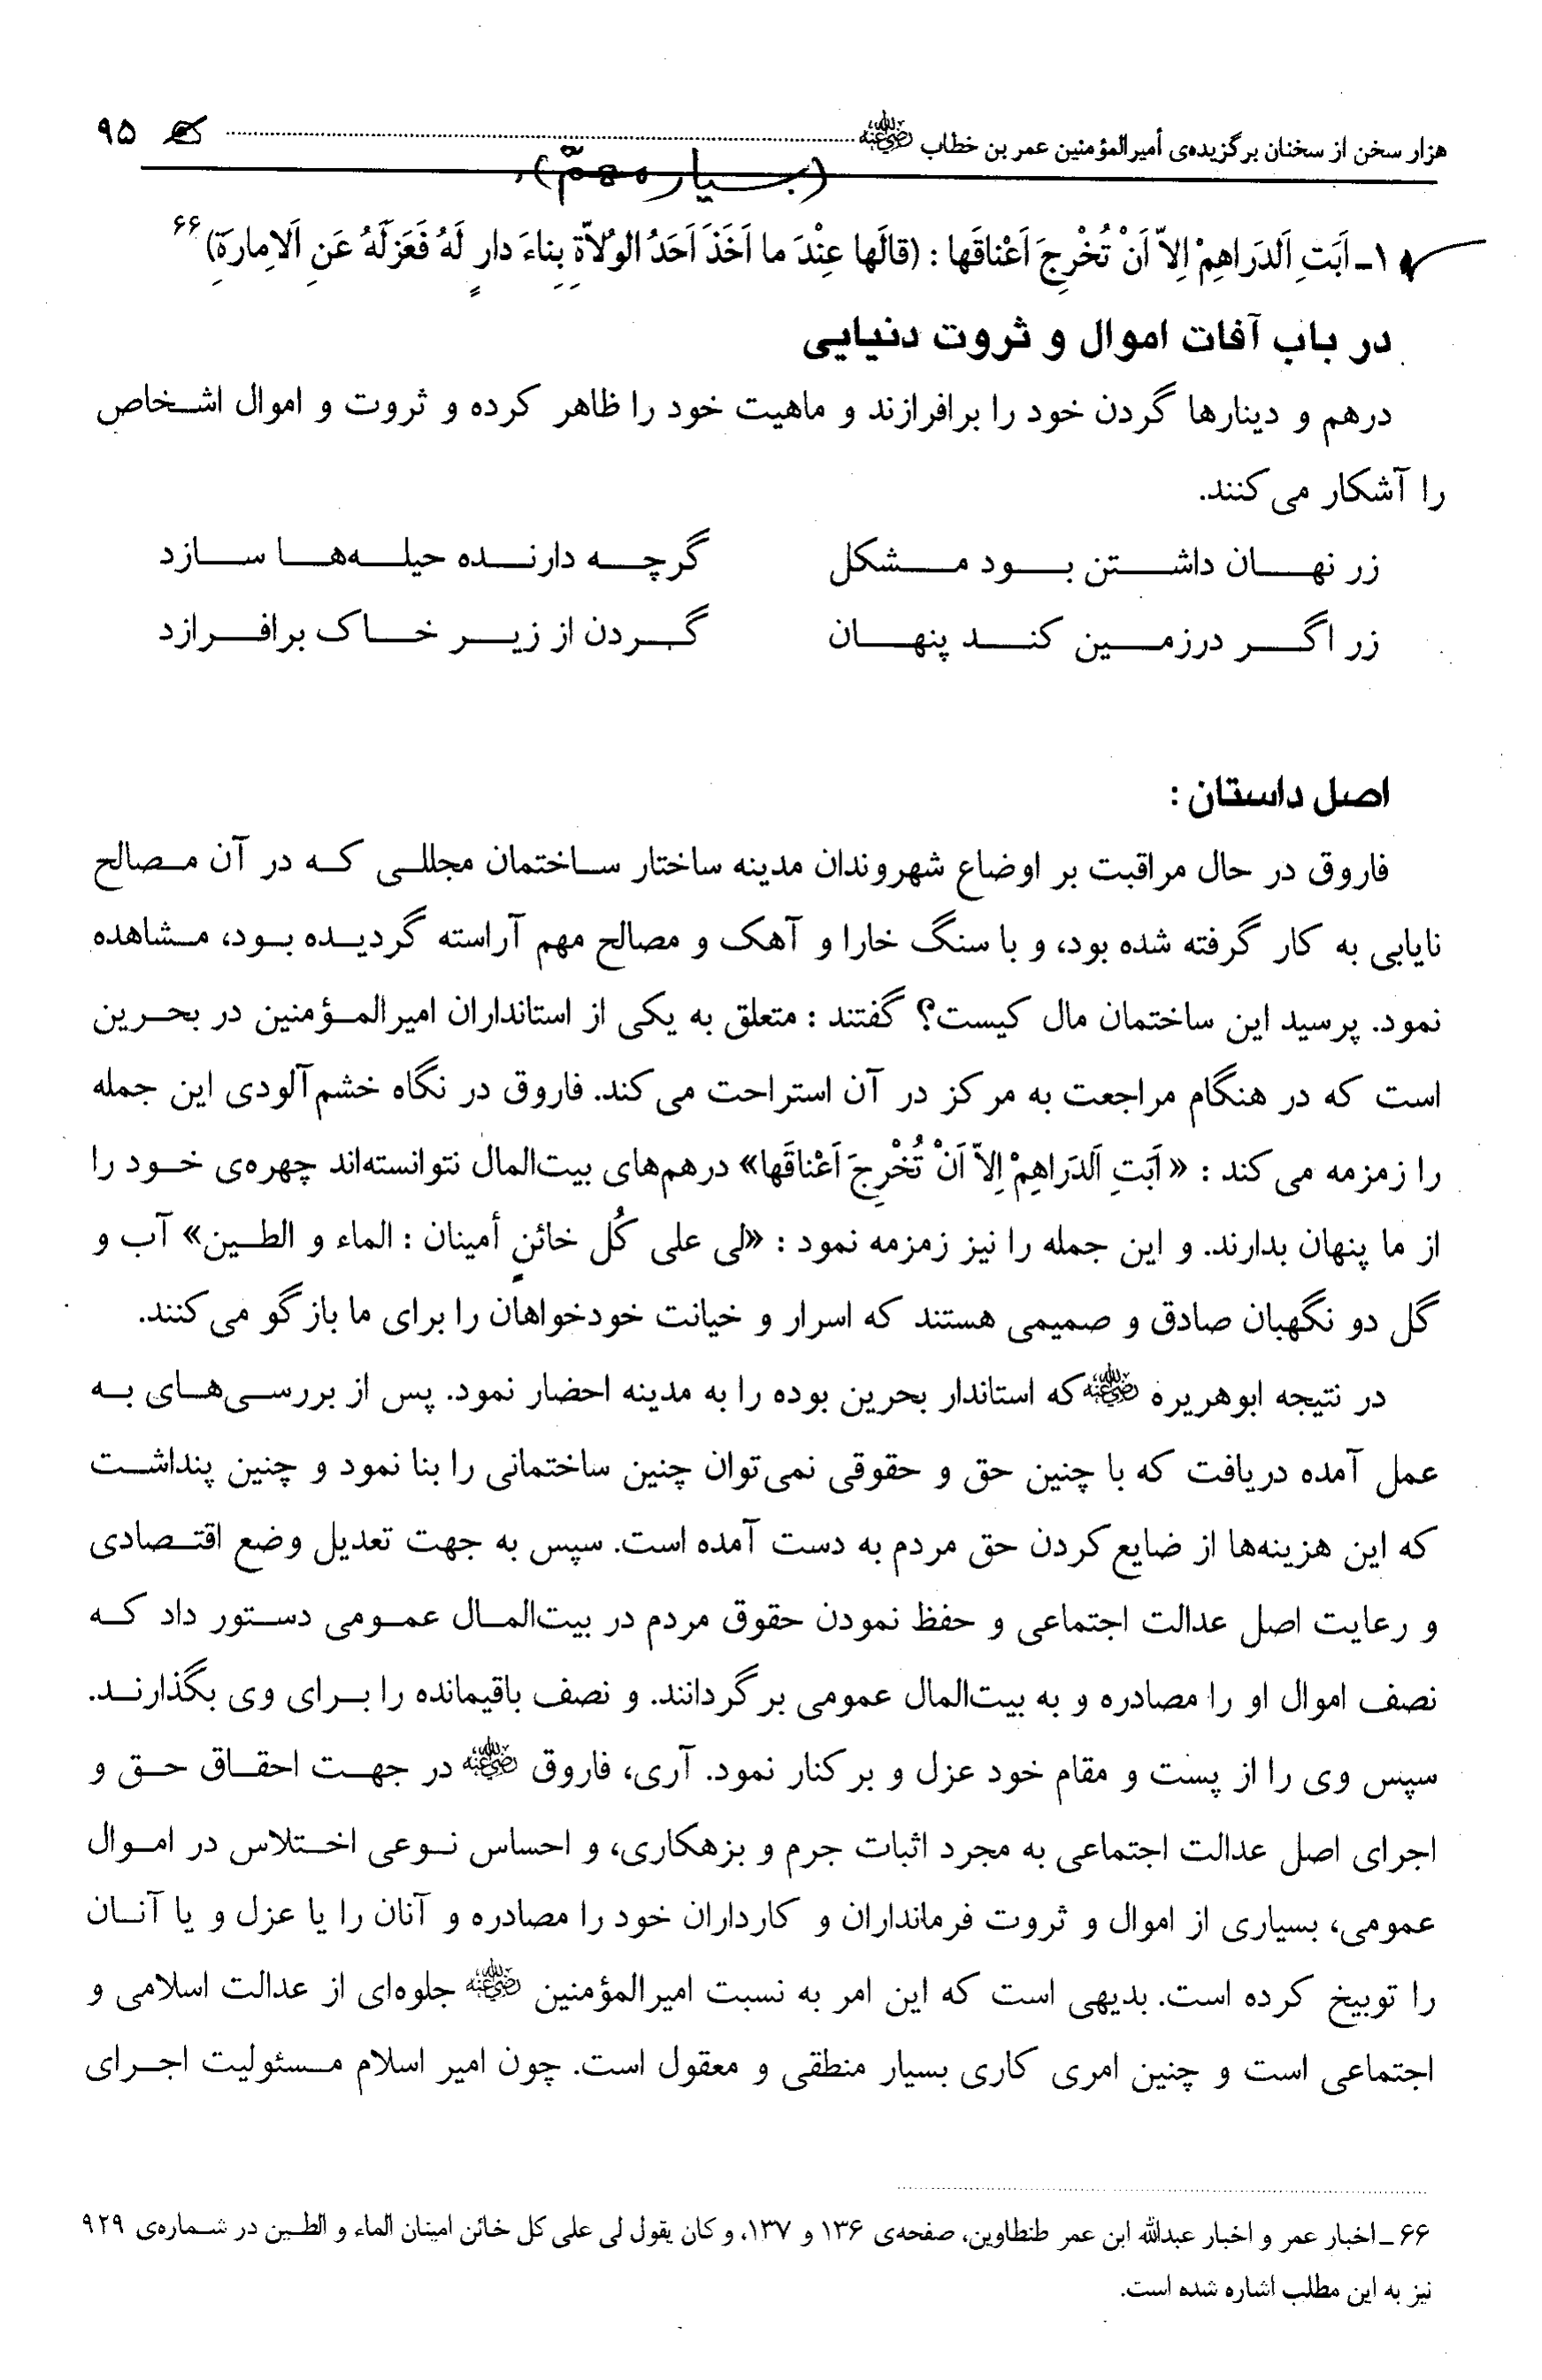 هزار سخن از سخنان برگزیده‌ی أمیرالمؤمنین عمر بن خطاب ﷺ ۹۵
(بسیار مهمّ)
۱ـ اَبَتِ اَلدَراهِمْ اِلاّ اَنْ تُخْرِجَ اَعْناقَها : (قالَها عِنْدَ ما اَخَذَ اَحَدُ الوُلاّةِ بِناءَ دارٍ لَهُ فَعَزلَهُ عَنِ اَلامِارَةِ)۶۶
در باب آفات اموال و ثروت دنیایی
درهم و دینارها گردن خود را برافرازند و ماهیت خود را ظاهر کرده و ثروت و اموال اشخاص
را آشکار می‌کنند.
زر نهان داشتن بود مشکل گرچه دارنده حیله‌ها سازد
زر اگر درزمین کند پنهان گردن از زیر خاک برافرازد
اصل داستان :
فاروق در حال مراقبت بر اوضاع شهروندان مدینه ساختار ساختمان مجللی که در آن مصالح
نایابی به کار گرفته شده بود، و با سنگ خارا و آهک و مصالح مهم آراسته گردیده بود، مشاهده
نمود. پرسید این ساختمان مال کیست؟ گفتند : متعلق به یکی از استانداران امیرالمؤمنین در بحرین
است که در هنگام مراجعت به مرکز در آن استراحت می‌کند. فاروق در نگاه خشم‌آلودی این جمله
را زمزمه می‌کند : «اَبَتِ اَلدَراهِمْ اِلاّ اَنْ تُخْرِجَ اَعْناقَها» درهم‌های بیت‌المال نتوانسته‌اند چهره‌ی خود را
از ما پنهان بدارند. و این جمله را نیز زمزمه نمود : «لی علی کُل خائنٍ أمینان : الماء و الطین» آب و
گل دو نگهبان صادق و صمیمی هستند که اسرار و خیانت خودخواهان را برای ما بازگو می‌کنند.
در نتیجه ابوهریره رضی الله عنه که استاندار بحرین بوده را به مدینه احضار نمود. پس از بررسی‌های به
عمل آمده دریافت که با چنین حق و حقوقی نمی‌توان چنین ساختمانی را بنا نمود و چنین پنداشت
که این هزینه‌ها از ضایع کردن حق مردم به دست آمده است. سپس به جهت تعدیل وضع اقتصادی
و رعایت اصل عدالت اجتماعی و حفظ نمودن حقوق مردم در بیت‌المال عمومی دستور داد که
نصف اموال او را مصادره و به بیت‌المال عمومی برگردانند. و نصف باقیمانده را برای وی بگذارند.
سپس وی را از پست و مقام خود عزل و برکنار نمود. آری، فاروق رضی الله عنه در جهت احقاق حق و
اجرای اصل عدالت اجتماعی به مجرد اثبات جرم و بزهکاری، و احساس نوعی اختلاس در اموال
عمومی، بسیاری از اموال و ثروت فرمانداران و کارداران خود را مصادره و آنان را یا عزل و یا آنان
را توبیخ کرده است. بدیهی است که این امر به نسبت امیرالمؤمنین رضی الله عنه جلوه‌ای از عدالت اسلامی و
اجتماعی است و چنین امری کاری بسیار منطقی و معقول است. چون امیر اسلام مسئولیت اجرای
۶۶ ـ اخبار عمر و اخبار عبدالله ابن عمر طنطاوین، صفحه‌ی ۱۳۶ و ۱۳۷، و کان یقول لی علی کل خائن امینان الماء و الطین در شماره‌ی ۹۲۹
نیز به این مطلب اشاره شده است.